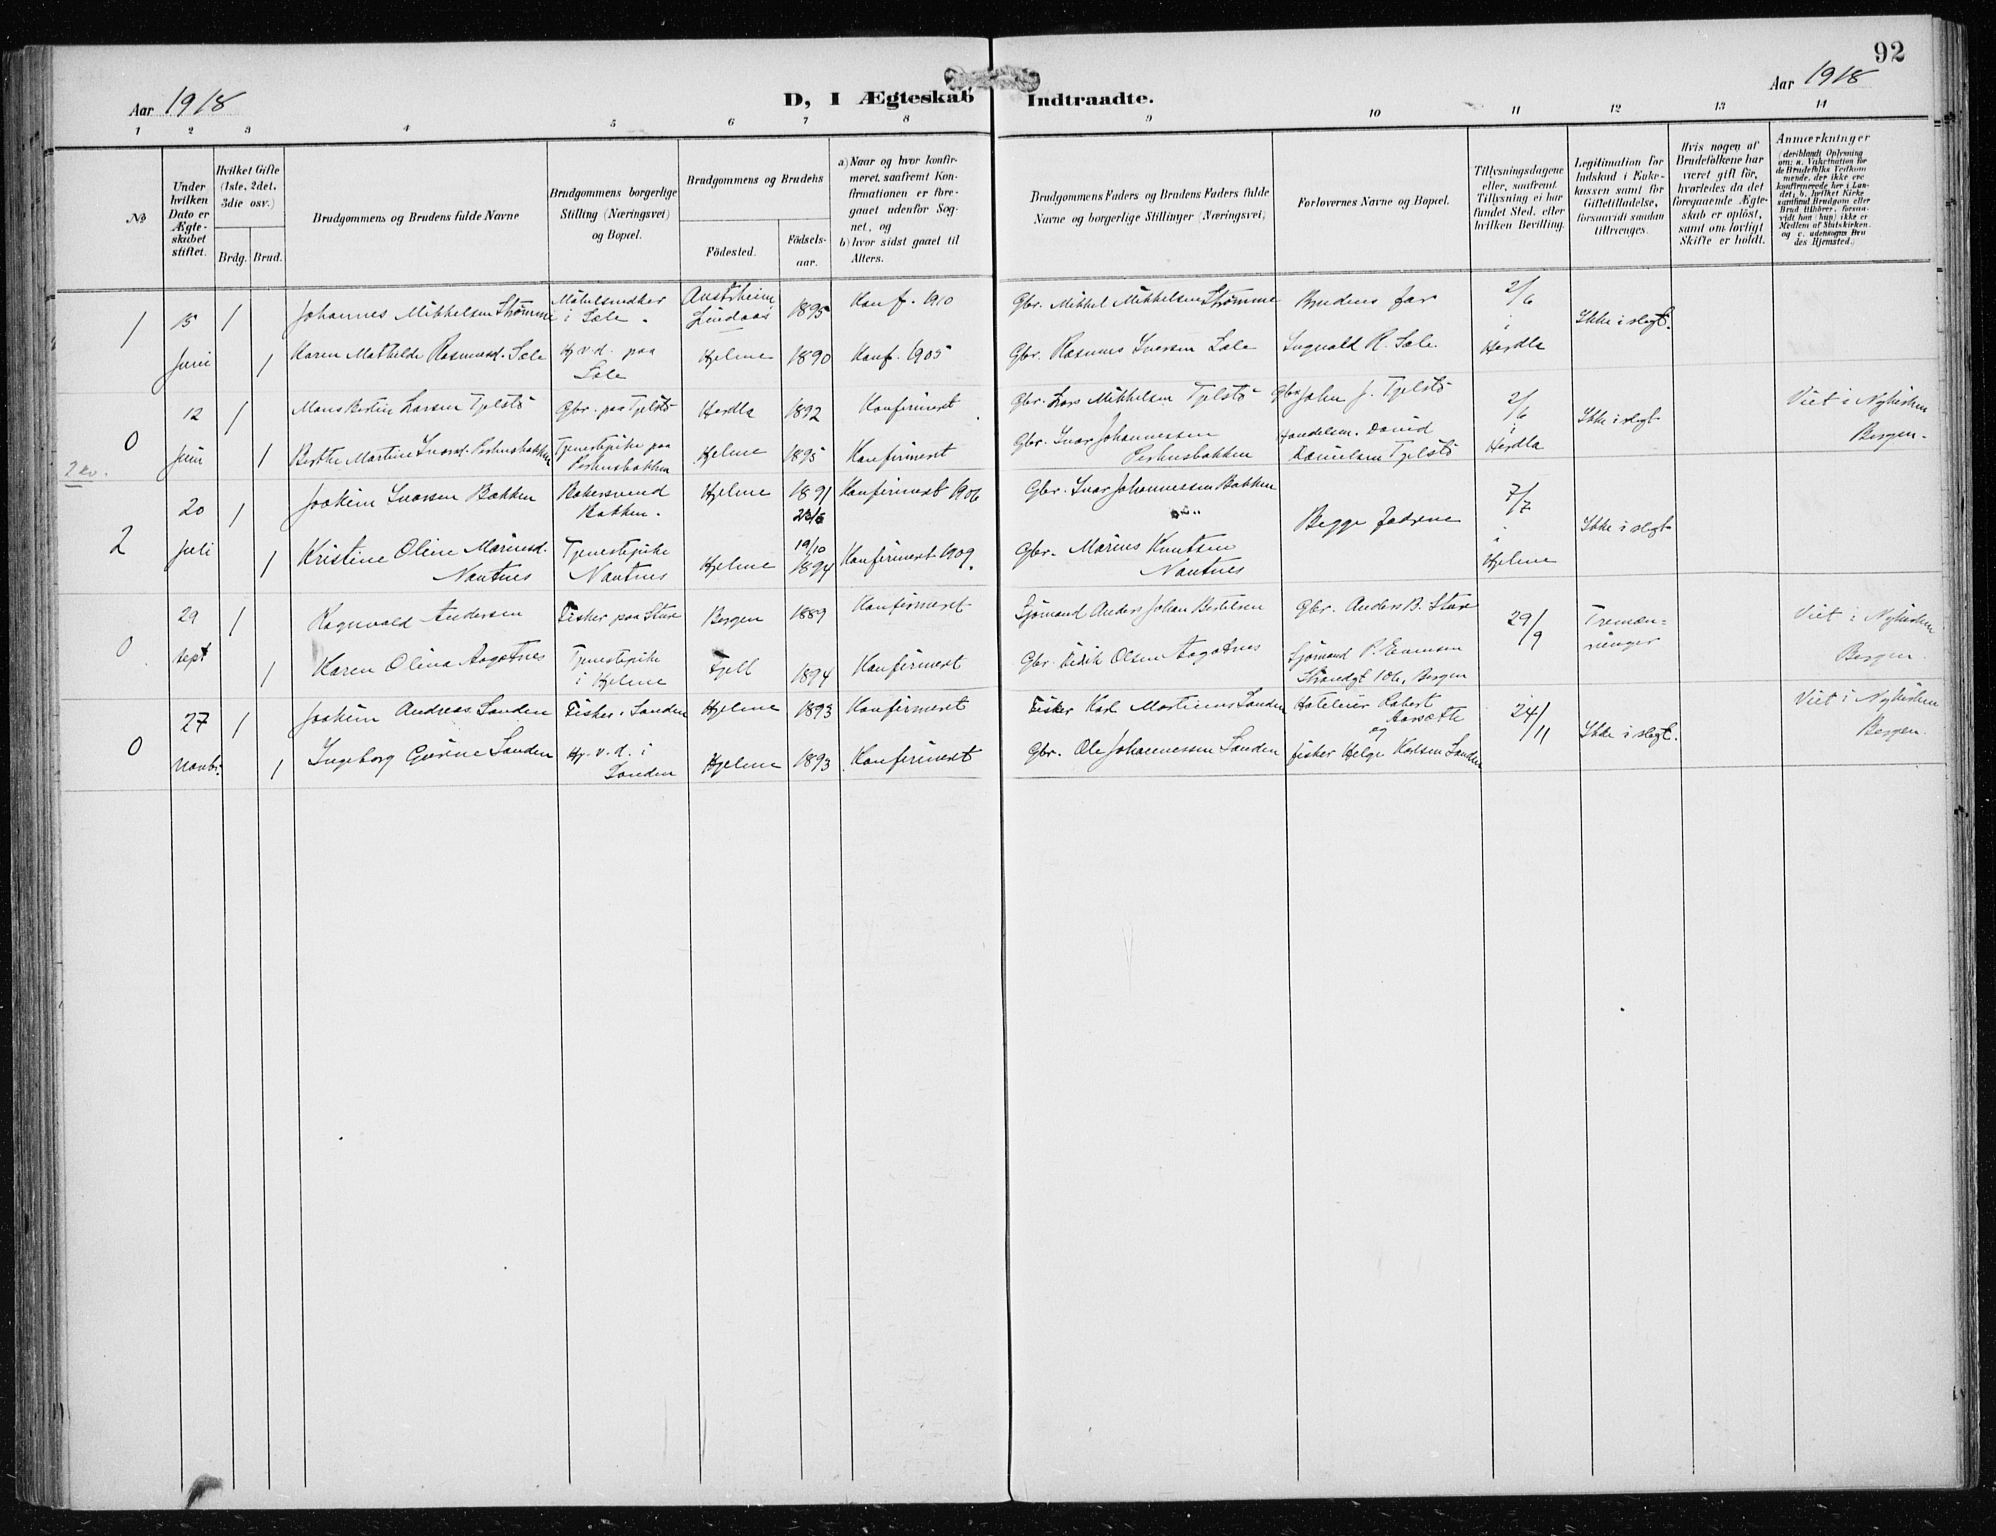 92
Aar 1918
D, I Ægteskab Indtraadte.
Aar 1918
1 2 3 4 5 6 7 8 9 10 11 12 13 14
No
Under hvilken Dato er Ægteskabet stiftet.
Hvilket Gifte (1ste, 2det, 3die osv.)
Brdg. Brud.
Brudgommens og Brudens fulde Navne
Brudgommens borgerlige Stilling (Næringsvei) og Bopæl.
Brudgommens og Brudens
Födested.
Födsels-aar.
a) Naar og hvor konfirmeret, saafremt Konfirmationen er foregaaet udenfor Sognet, og
b) hvor sidst gaaet til Alters.
Brudgommens Faders og Brudens Faders fulde Navne og borgerlige Stillinger (Næringsvei)
Forlovernes Navne og Bopæl.
Tillysningsdagene eller, saafremt Tillysning ei har fundet Sted, efter hvilken Bevilling.
Legitimation for Indskud i Enkekassen samt for Giftetilladelse, forsaavidt saadan tiltrænges.
Hvis nogen af Brudefolkene har været gift för, hvorledes da det foregaaende Ægteskab er oplöst, samt om lovligt Skifte er holdt.
Anmærkninger
1 15 Juni 1 Johannes Mikkelsen Strømme Møbelsnedker i Sæle. Austrheim Lindaas 1895 Konf. 1910 Gbr. Mikkel Mikkelsen Strømme Brudens far 2/6 i Herdla Ikke i slegt.
1 Karen Mathilde Rasmusd. Sæle Hj. v. d. paa Sæle Hjelme 1890 Konf. 1905 Gbr. Rasmus Iversen Sæle Ingvald R. Sæle
0 12 Juni 1 Mons Bertin Larsen Tjelstø Gbr. paa Tjelstø Herdla 1892 Konfirmeret Gbr. Lars Mikkelsen Tjelstø Gbr. John J. Tjelstø 2/6 i Herdla Ikke i slegt Viet i Nykirken Bergen.
1 Berthe Martine Ivarsd. Tjenestepike paa Hjelme 1895 Konfirmeret Gbr. Ivar Johannessen Handelsm. David Danielsen Tjelstø
2 20 Juli 1 Joakim Ivarsen Bakken Bakersvend Bakken. Hjelme 1891 Konfirmeret 1906 Gbr. Ivar Johannessen Bakken Begge fædrene 7/7 i Hjelme Ikke i slegt
1 Kristine Oline Marinsd. Nautnes Tjenestepike Nautnes Hjelme 19/10 1894 Konfirmeret 1909. Gbr. Marius Knutsen Nautnes
0 29 sept 1 Ragnvald Andersen Fisker paa Sture Bergen 1889 Konfirmeret Sjømand Anders Johan Bertelsen Gbr. Anders B. Sture 29/9 Tremænninger Viet i Nykirken Bergen.
1 Karen Olina Aagotnes Tjenestepike i Hjelme Fjell 1894 Konfirmeret Gbr. Olsen Aagotnes Sjømand P. Evensen Strandgt 106, Bergen
0 27 Novbr. 1 Joakim Andreas Sanden Fisker i Sanden Hjelme 1893 Konfirmeret Fisker Karl Martinus Sanden Hoteleier Robert Aarsæth og 24/11 Ikke i slegt. Viet i Nykirken Bergen.
1 Ingeborg Gurine Sanden Hj. v. d. i Sanden Hjelme 1893 Konfirmeret Gbr. Ole Johannessen Sanden fisker Helge Karlsen Sanden